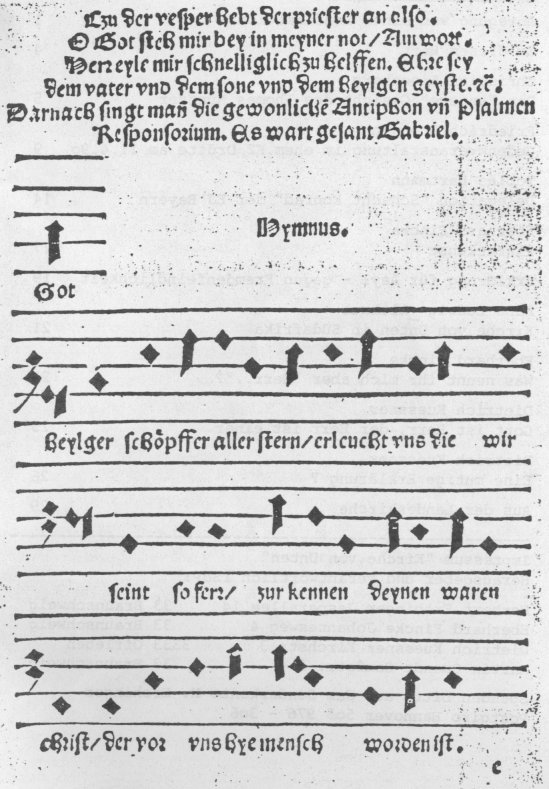 Czu der vesper hebt der priester an also.
O Got steh mir bey in meyner not / Antwort.
Herr eyle mir schnelliglich zu helffen. Ehre sey
dem vater vnd dem sone vnd dem heylgen geyste. ꝛc̃.
Darnach singt mañ die gewonlichẽ Antiphon vñ Psalmen
Responsorium. Es wart gesant Gabriel.
Hymnus.
Got
heylger schöpffer aller stern / erleucht vns die wir
seint so ferr / zur kennen deynen waren
christ / der vor vns hye mensch worden ist.
c